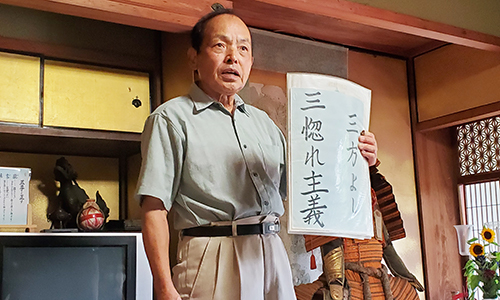 三方よし
三惚れ主義